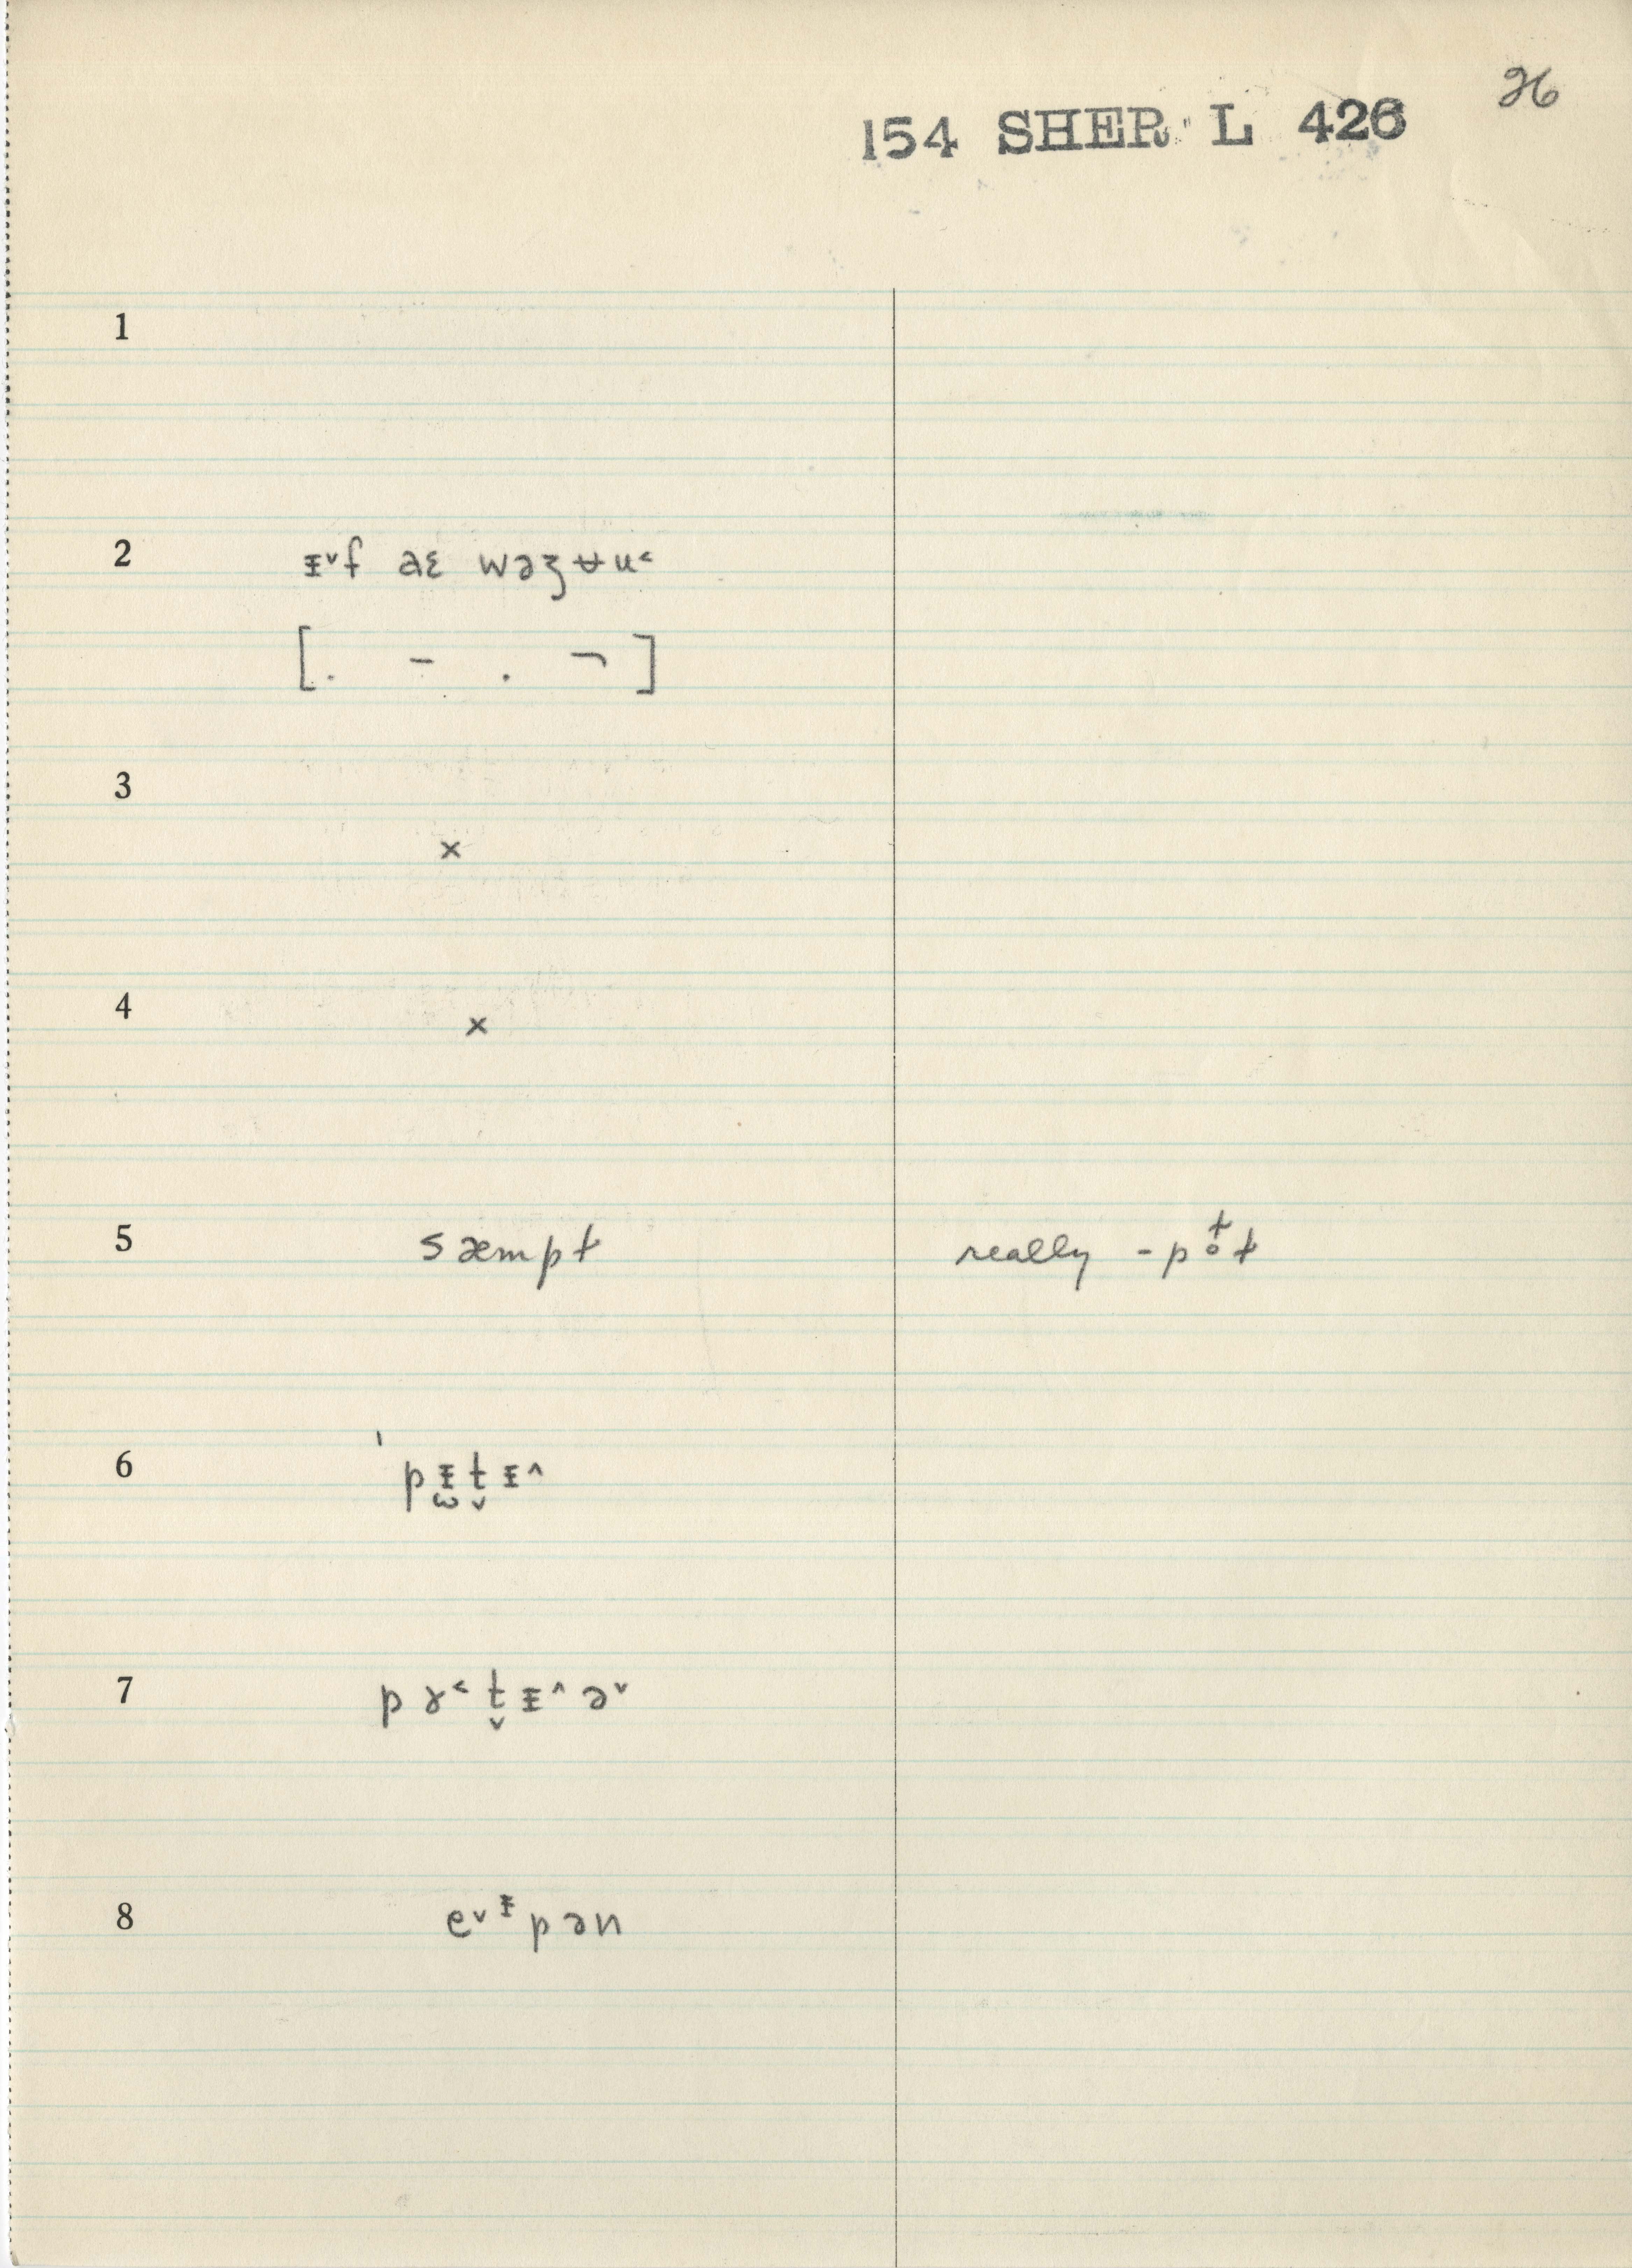 26
154 SHER L 426
1
2 ᵻ˅f aɛ wəʒʉu˂
[. – . ¬]
3
×
4
×
5 sæmpt really -p t̥ t
6 ˈpᵻ̫t̬ᵻ˄
7 pɚ˂t̬ᵻ˄ə˅
8 e˅ᵻpən